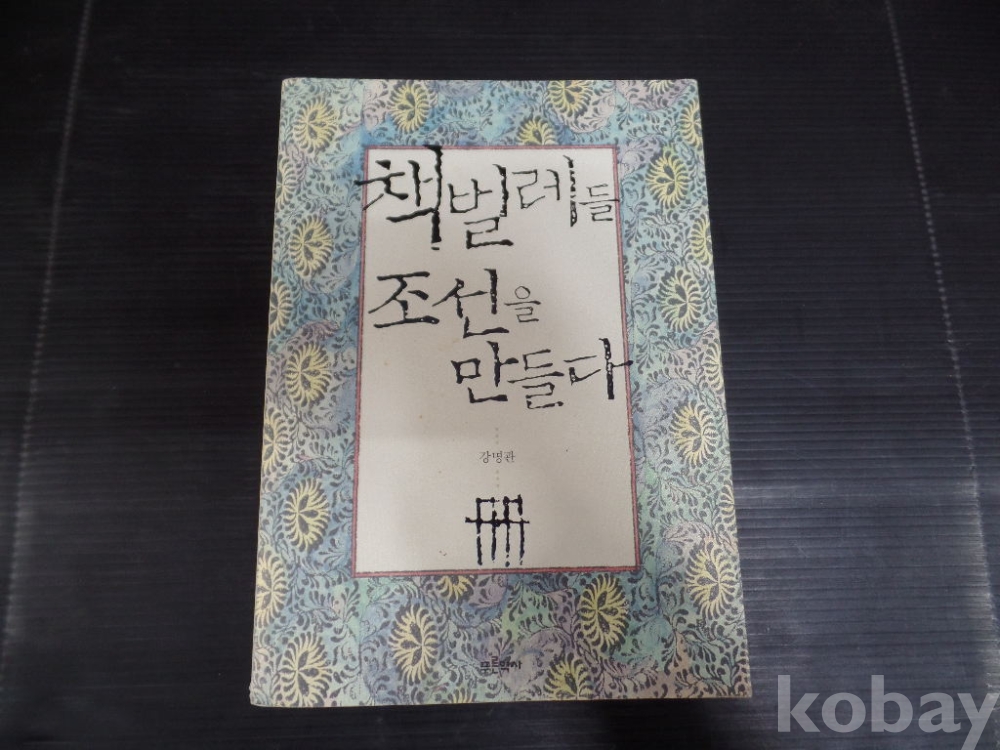 책벌레들
조선을
만들다
강명관
冊
푸른역사
kobay